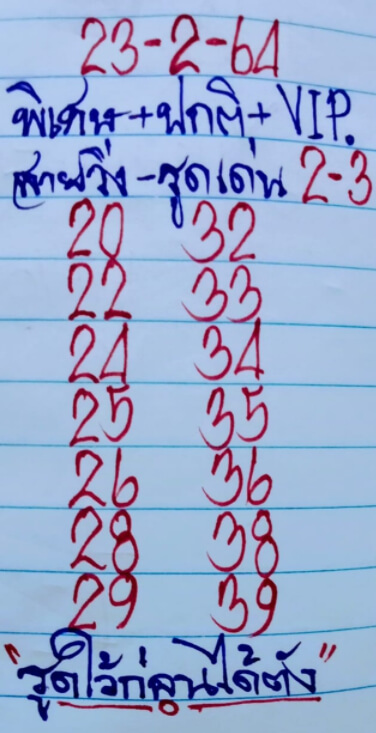 23-2-64
พิเศษ+ปกติ+VIP.
สายวิ่ง-รูดเด่น 2-3
20 32
22 33
24 34
25 35
26 36
28 38
29 39
"รูดไว้ก่อนได้ตัง"